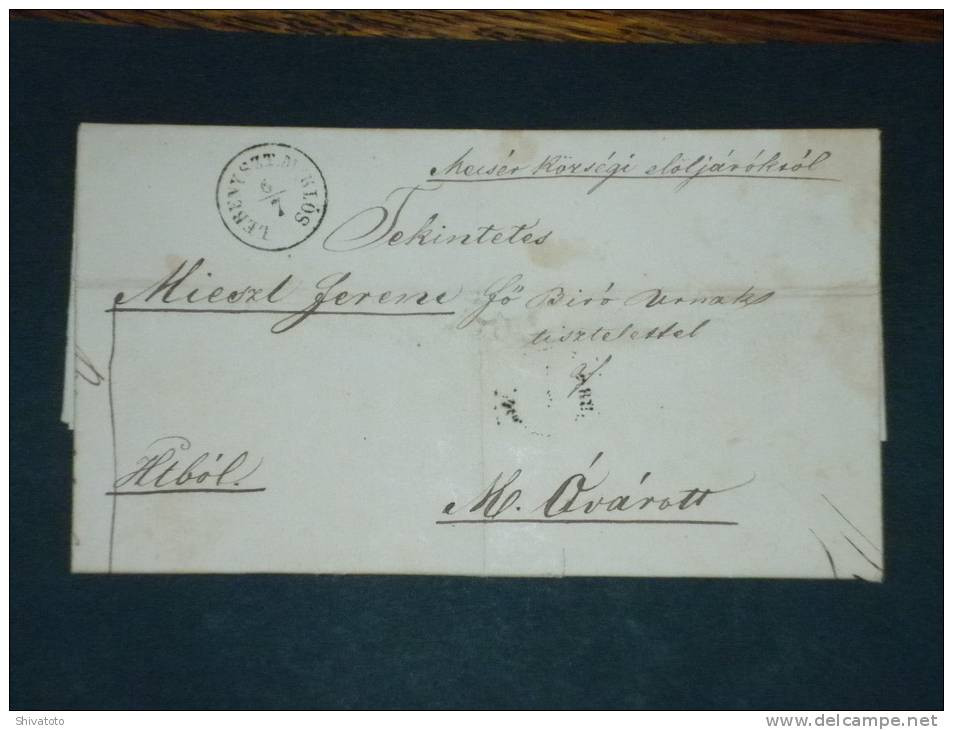 Mecsér Községi elöljáróktól
LEBENY SZT. MIKLÓS
6/7
Tekintetes
Mieszl Ferenc fő Biró Urnak
tisztelettel
Htból.
M. Óvárott
Shivatoto
www.delcampe.net